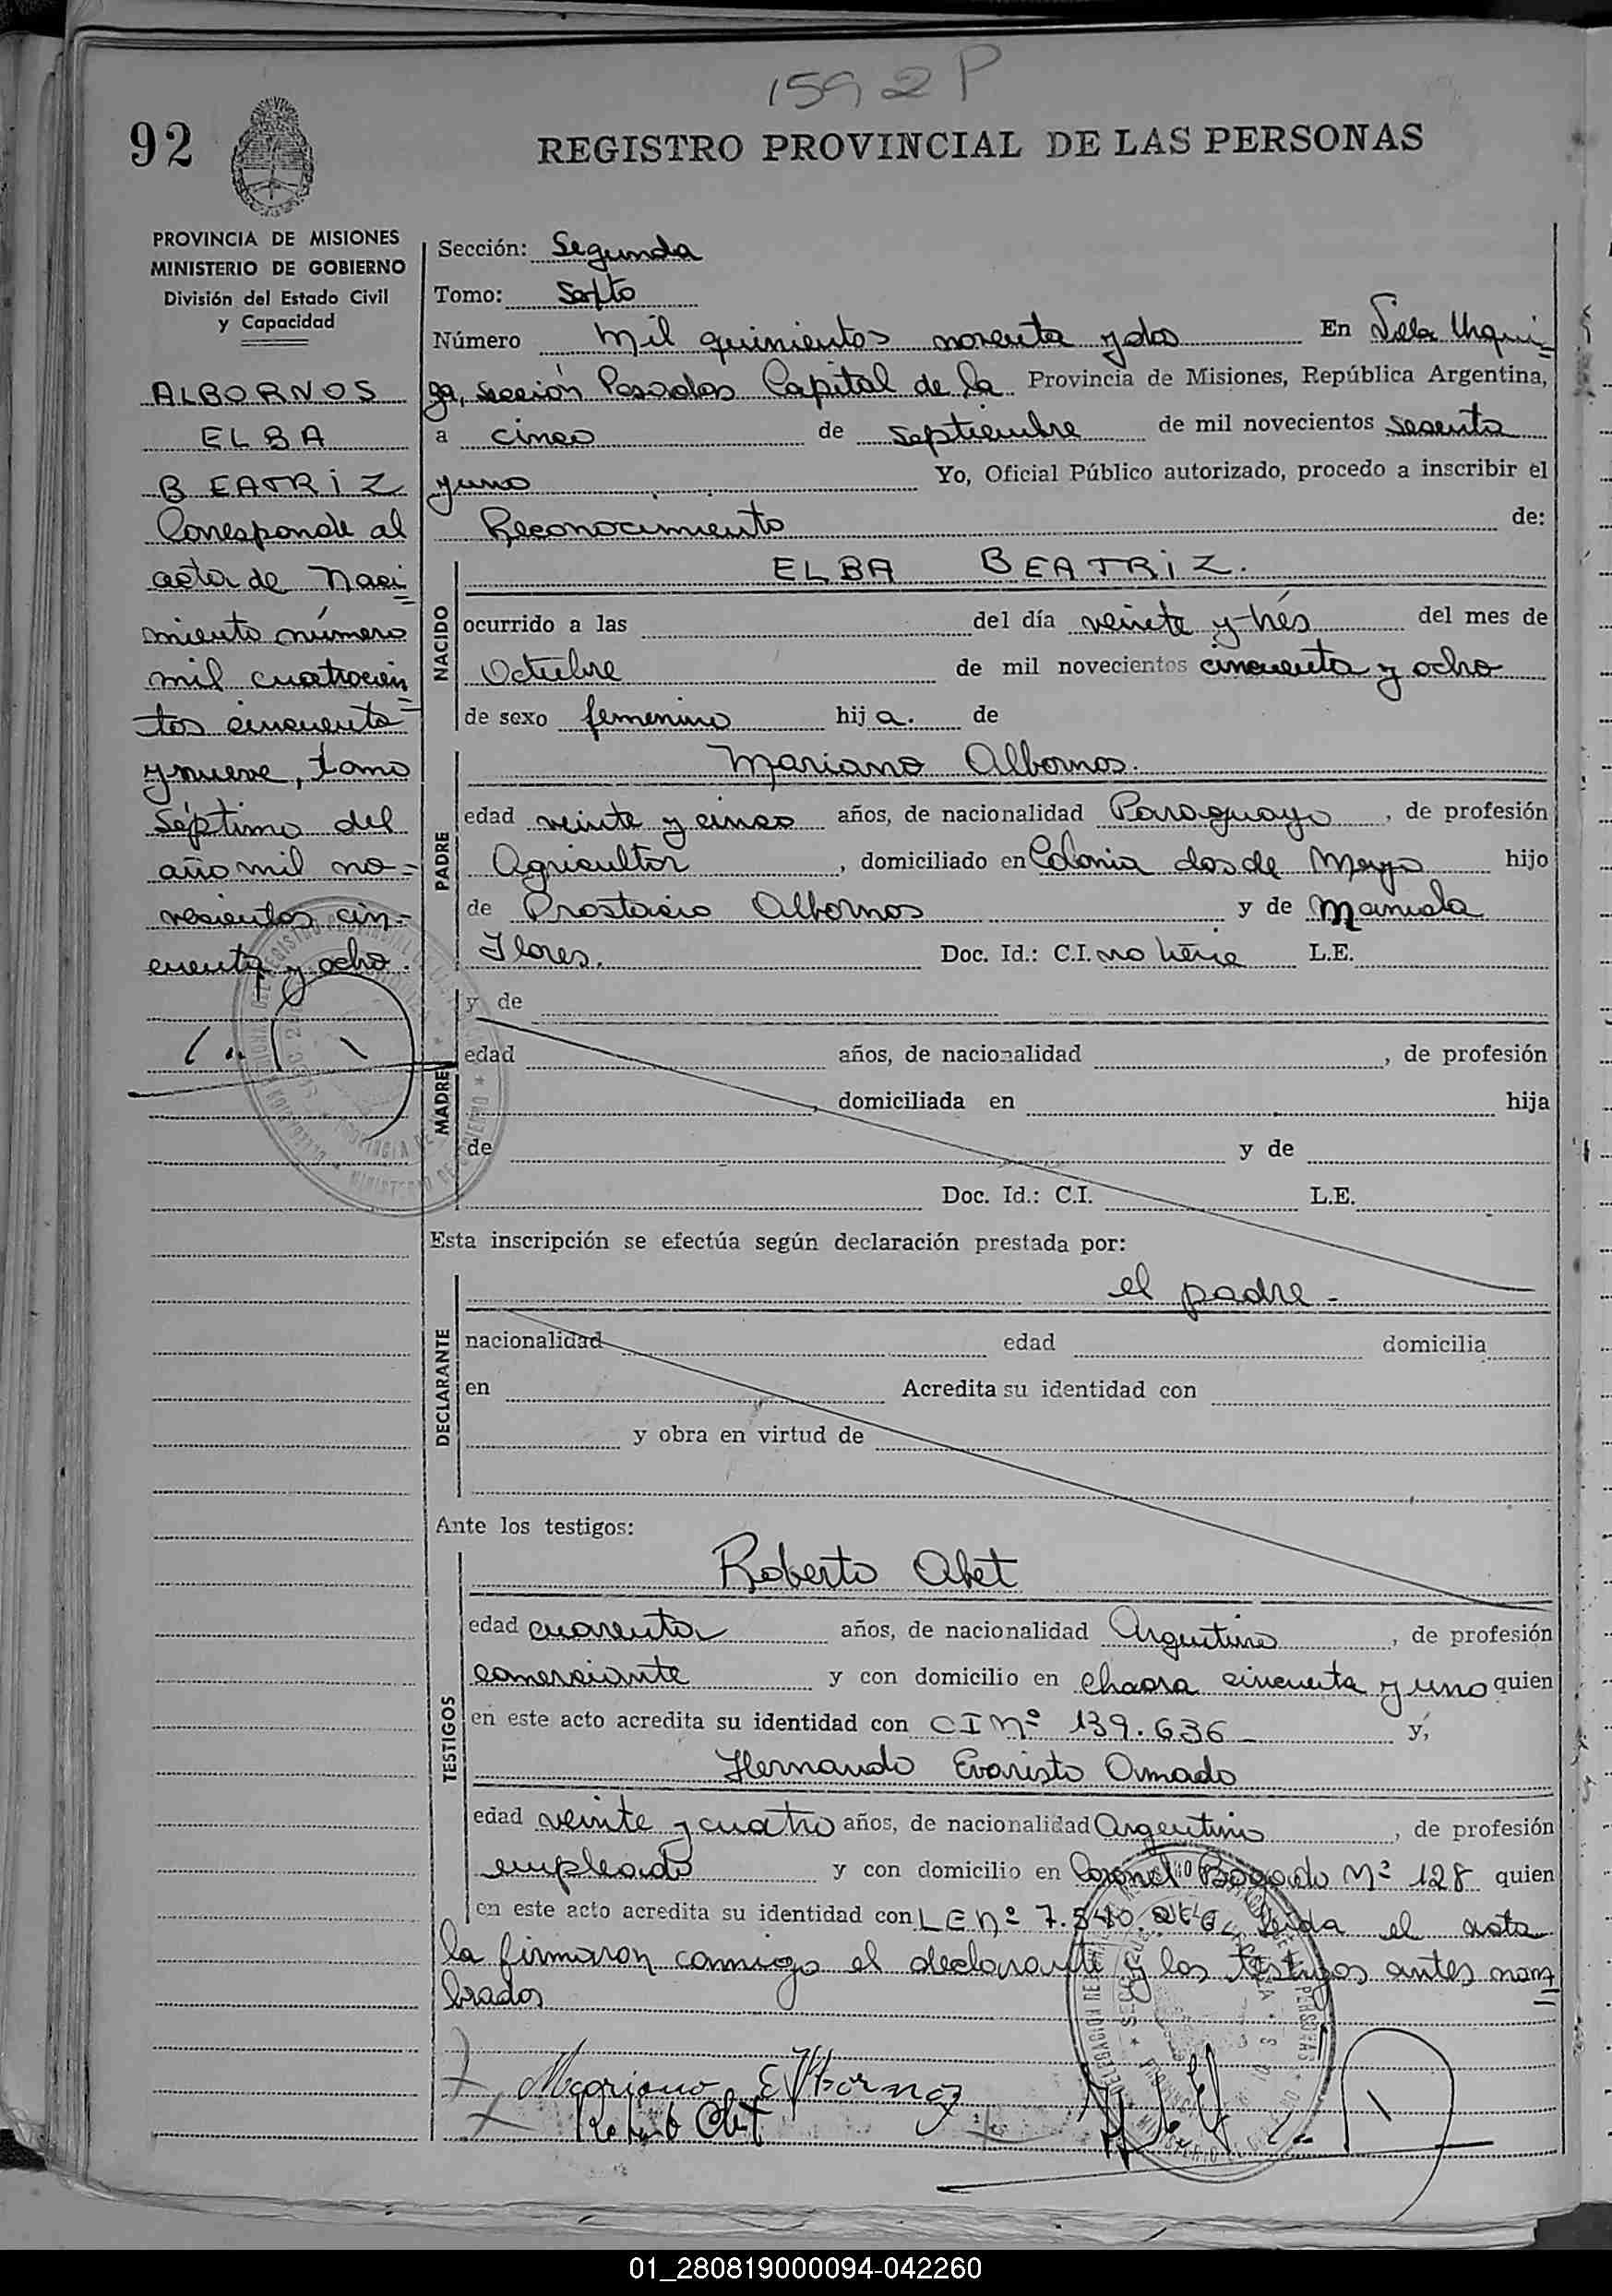 1592 P
92
REGISTRO PROVINCIAL DE LAS PERSONAS
PROVINCIA DE MISIONES
MINISTERIO DE GOBIERNO
División del Estado Civil
y Capacidad
ALBORNOS
ELBA
BEATRIZ
Corresponde al
acta de Naci=
miento número
mil cuatrocien=
tos cincuenta
y nueve, tomo
séptimo del
año mil no=
vecientos cin=
cuenta y ocho.
Sección: Segunda
Tomo: Sexto
Número mil quinientos noventa y dos En Villa Urqui=
za, sección Posadas Capital de la Provincia de Misiones, República Argentina,
a cinco de septiembre de mil novecientos sesenta
y uno Yo, Oficial Público autorizado, procedo a inscribir el
Reconocimiento de:
NACIDO
ELBA BEATRIZ.
ocurrido a las del día veinte y trés del mes de
Octubre de mil novecientos cincuenta y ocho
de sexo femenino hija. de
PADRE
Mariano Albornos.
edad veinte y cinco años, de nacionalidad Paraguayo, de profesión
Agricultor, domiciliado en Colonia dos de Mayo hijo
de Prostacio Albornos y de Manuela
Flores. Doc. Id.: C.I. no tiene L.E.
MADRE
y de
edad años, de nacionalidad , de profesión
, domiciliada en hija
de y de
Doc. Id.: C.I. L.E.
Esta inscripción se efectúa según declaración prestada por:
DECLARANTE
el padre -
nacionalidad edad domicilia
en Acredita su identidad con
y obra en virtud de
Ante los testigos:
TESTIGOS
Roberto Abet
edad cuarenta años, de nacionalidad Argentino, de profesión
comerciante y con domicilio en chacra cincuenta y uno quien
en este acto acredita su identidad con CI Nº 139.636 y,
Hernando Evaristo Amado
edad veinte y cuatro años, de nacionalidad Argentino, de profesión
empleado y con domicilio en Coronel Bogado Nº 128 quien
en este acto acredita su identidad con LE nº 7.540. Leida el acta
la firmaron conmigo el declarante y los testigos antes nom=
brados
Mariano Albornoz
Roberto Abet
01_280819000094-042260